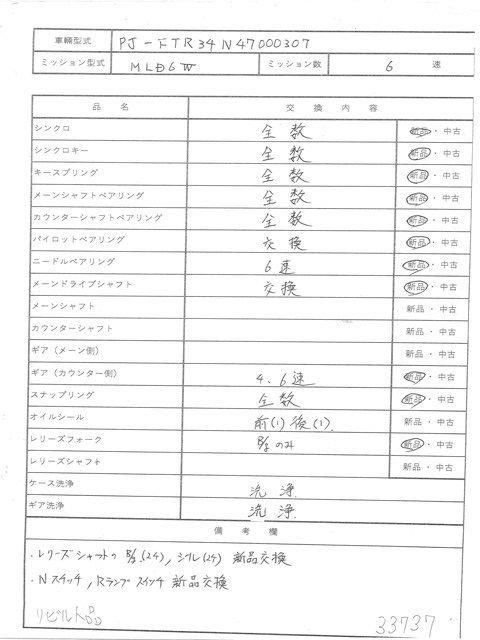 車輌型式 PJ-FTR34N47000307
ミッション型式 MLD6W ミッション数 6 速
品 名 交 換 内 容
シンクロ 全 数 新品・中古
シンクロキー 全 数 新品・中古
キースプリング 全 数 新品・中古
メーンシャフトベアリング 全 数 新品・中古
カウンターシャフトベアリング 全 数 新品・中古
パイロットベアリング 交 換 新品・中古
ニードルベアリング 6 速 新品・中古
メーンドライブシャフト 交 換 新品・中古
メーンシャフト 新品・中古
カウンターシャフト 新品・中古
ギア（メーン側） 新品・中古
ギア（カウンター側） 4、6速 新品・中古
スナップリング 全 数 新品・中古
オイルシール 前(1) 後(1). 新品・中古
レリーズフォーク B/Sのみ 新品・中古
レリーズシャフト 新品・中古
ケース洗浄 洗 浄
ギア洗浄 洗 浄
備 考 欄
・レリーズシャフトの B/S(2ケ), シール(2ケ) 新品交換
・Nスイッチ, Rランプスイッチ 新品交換
リビルト品 33737